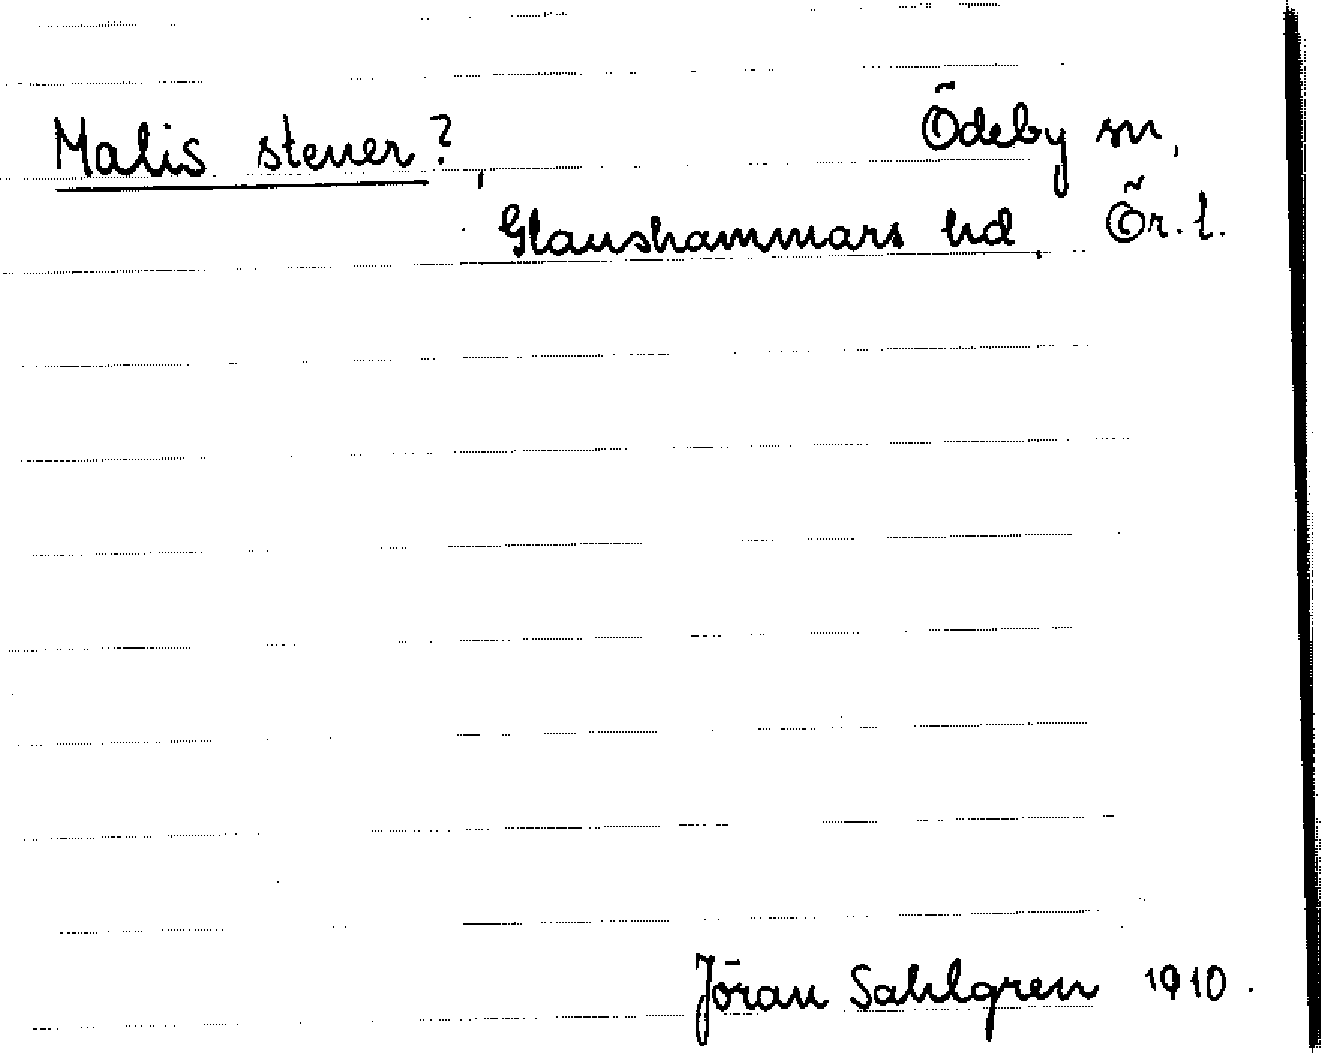 Malis stener?, Ödeby sn,
Glanshammars hd, Ör. l.
Jöran Sahlgren 1910.